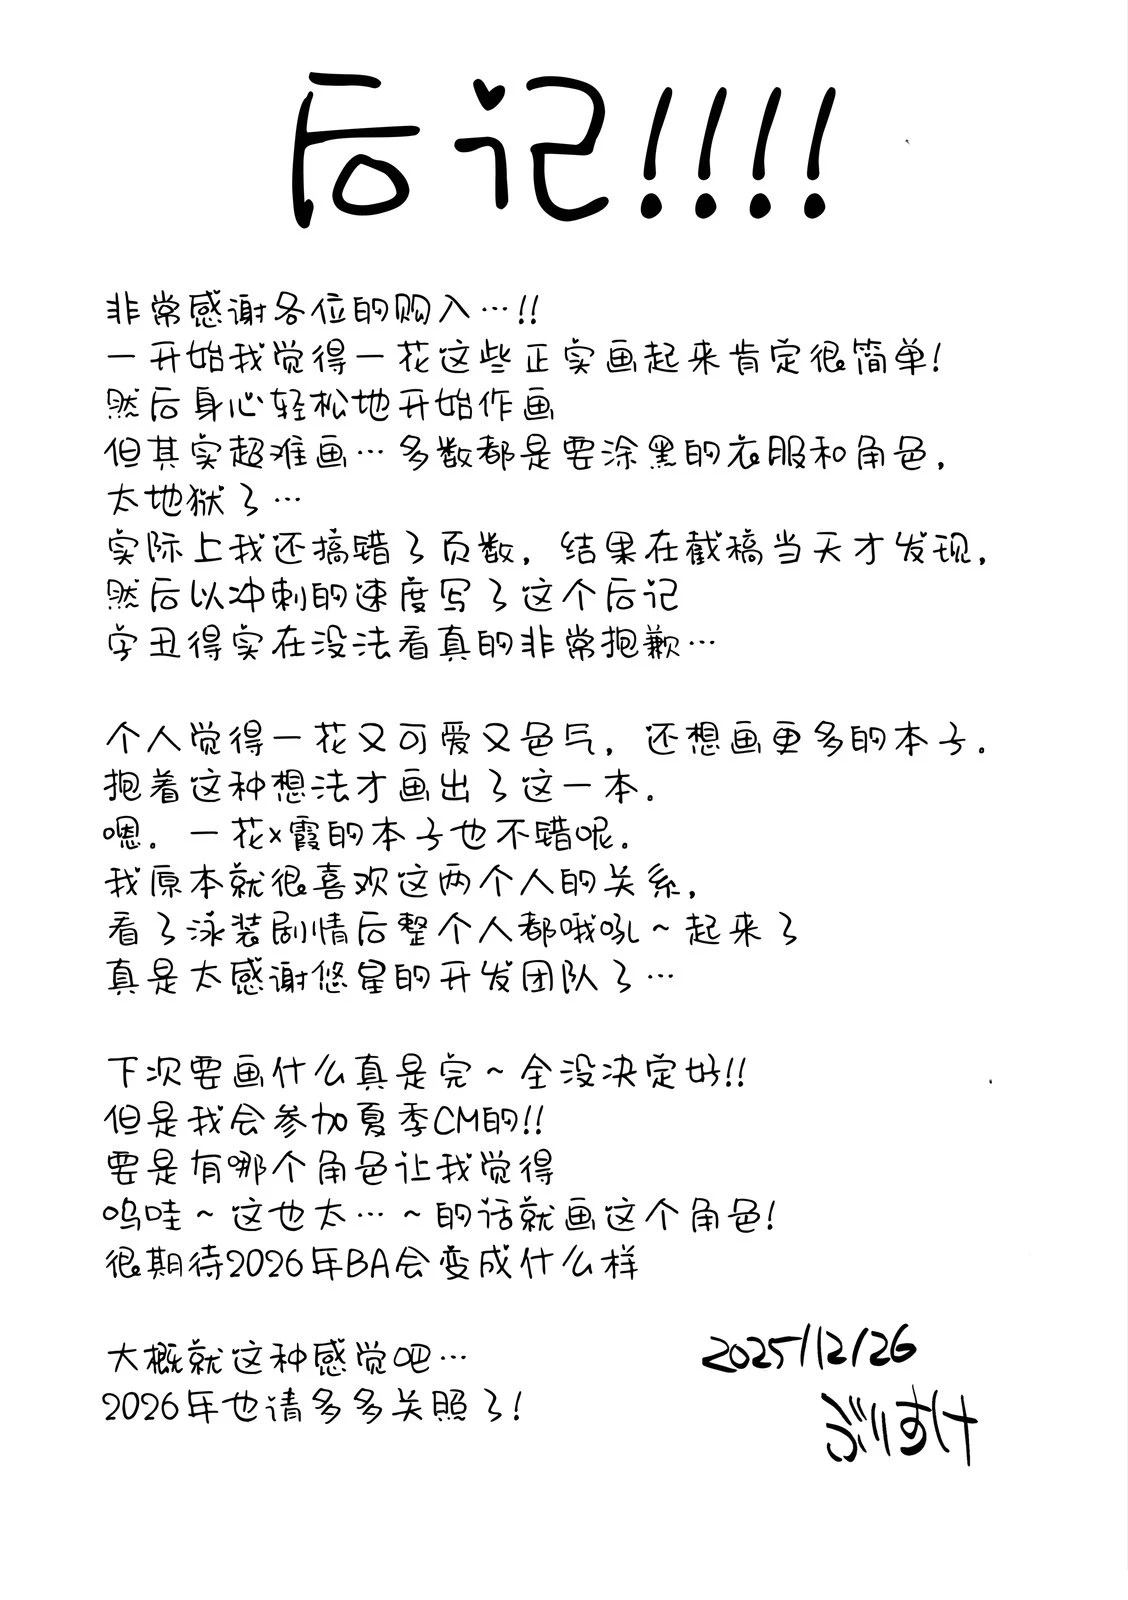 后记!!!!
非常感谢各位的购入…!!
一开始我觉得一花这些正实画起来肯定很简单!
然后身心轻松地开始作画
但其实超难画…多数都是要涂黑的衣服和角色,
太地狱了…
实际上我还搞错了页数, 结果在截稿当天才发现,
然后以冲刺的速度写了这个后记
字丑得实在没法看真的非常抱歉…
个人觉得一花又可爱又色气, 还想画更多的本子.
抱着这种想法才画出了这一本.
嗯. 一花x霞的本子也不错呢.
我原本就很喜欢这两个人的关系,
看了泳装剧情后整个人都哦吼~起来了
真是太感谢悠星的开发团队了…
下次要画什么真是完~全没决定好!!
但是我会参加夏季CM的!!
要是有哪个角色让我觉得
呜哇~这也太…~的话就画这个角色!
很期待2026年BA会变成什么样
大概就这种感觉吧…
2026年也请多多关照了!
2025/12/26
ぶりすけ